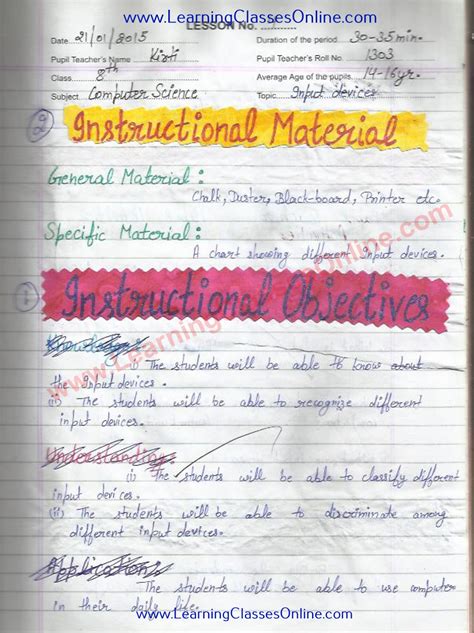 www.LearningClassesOnline.com
LESSON No.
Date 21/01/2015 Duration of the period 30-35 min.
Pupil Teacher's Name Kirti Pupil Teacher's Roll No. 1303
Class 8th Average Age of the pupils 14-16yr.
Subject Computer Science Topic Input devices
② Instructional Material
General Material :
Chalk, Duster, Black-board, Printer etc.
Specific Material :
A chart showing different input devices.
① Instructional Objectives
Knowledge:
i) The students will be able to know about
the Input devices.
(ii) The students will be able to recognize different
input devices.
Understanding:
(i) The students will be able to classify different
input devices.
(ii) The students will be able to discriminate among
different input devices.
Application:
The students will be able to use computer
in their daily life.
www.LearningClassesOnline.com
www.LearningClassesOnline.com